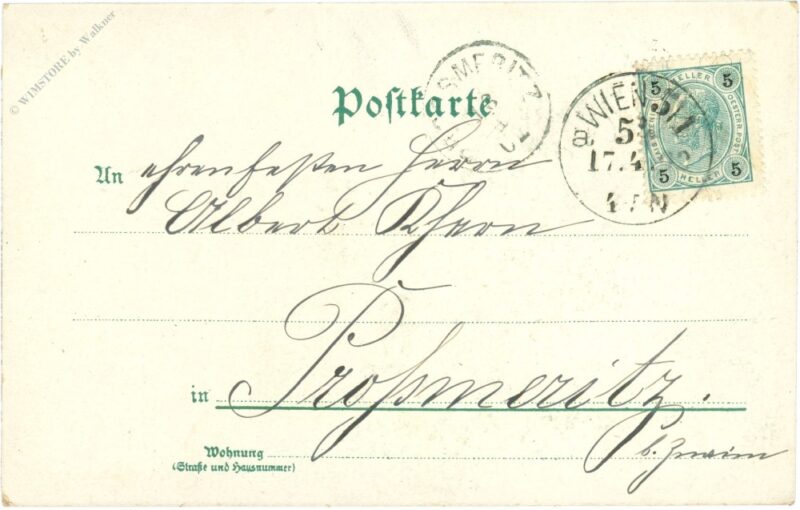 © WIMSTORE by Walkner
Postkarte
SMERITZ
WIEN 5/1
5*
17.4
4 N
5 HELLER 5
OESTERR. POST
5 HELLER 5
An ehrenfesten Herrn
Albert Khern
in Proßmeritz.
b. Znaim
Wohnung
(Straße und Hausnummer)